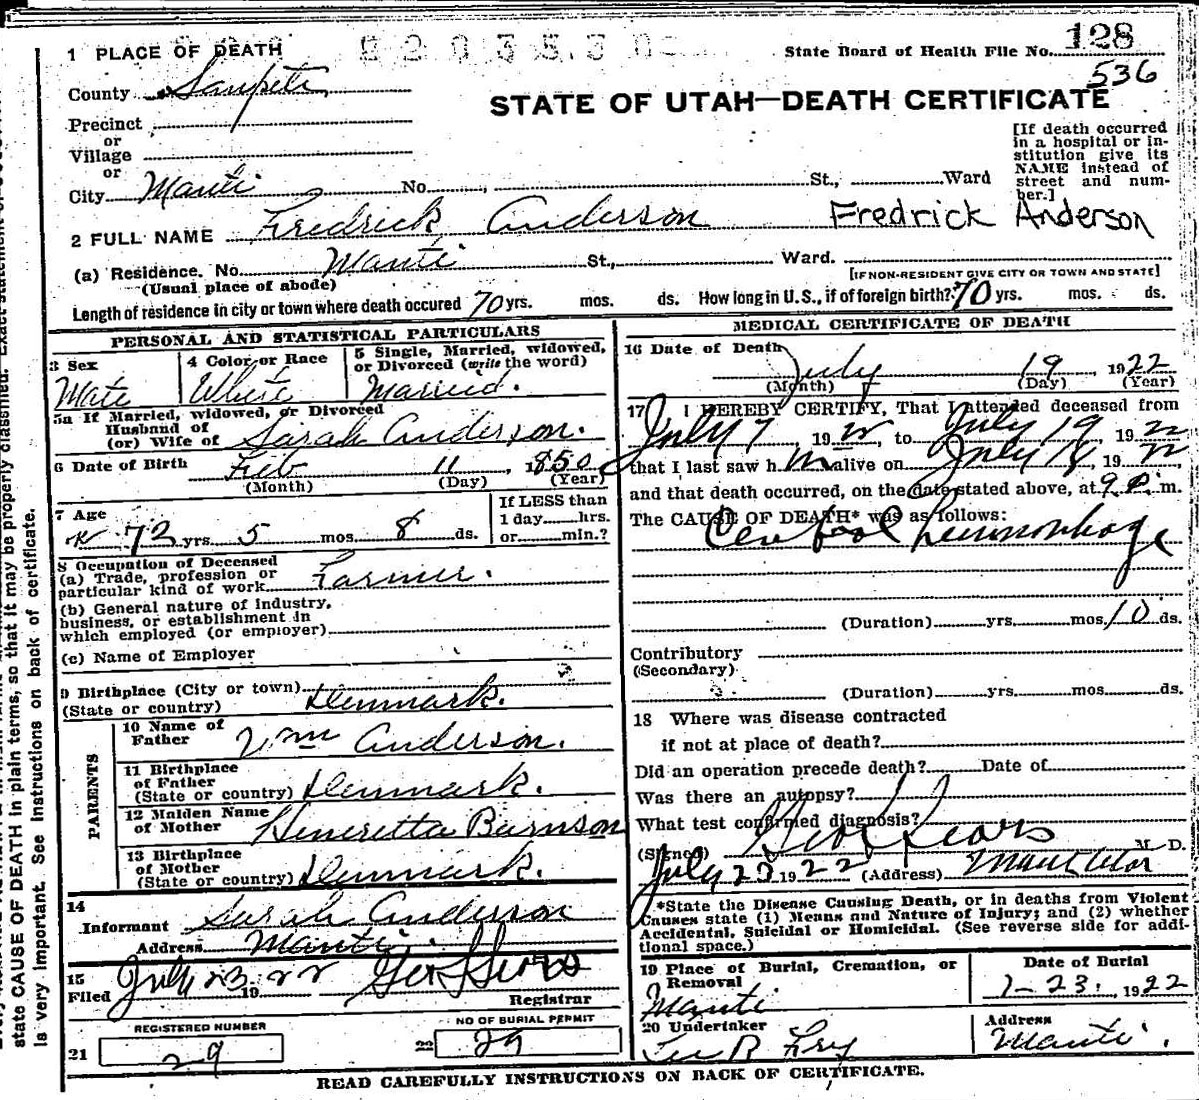 1 PLACE OF DEATH
State Board of Health File No. 128
536
County Sanpete
STATE OF UTAH—DEATH CERTIFICATE
Precinct
or
Village
or
City Manti No. St., Ward
[If death occurred
in a hospital or in-
stitution give its
NAME instead of
street and num-
ber.]
2 FULL NAME Fredrick Anderson Fredrick Anderson
(a) Residence. No. Manti St., Ward.
(Usual place of abode) [IF NON-RESIDENT GIVE CITY OR TOWN AND STATE]
Length of residence in city or town where death occured 70 yrs. mos. ds. How long in U.S., if of foreign birth? 70 yrs. mos. ds.
PERSONAL AND STATISTICAL PARTICULARS
3 Sex
Male
4 Color or Race
White
5 Single, Married, widowed,
or Divorced (write the word)
Married.
5a If Married, widowed, or Divorced
Husband of
(or) Wife of Sarah Anderson.
6 Date of Birth Feb 11 1850
(Month) (Day) (Year)
7 Age
72 yrs. 5 mos. 8 ds.
If LESS than
1 day hrs.
or min.?
8 Occupation of Deceased
(a) Trade, profession or
particular kind of work Farmer.
(b) General nature of industry,
business, or establishment in
which employed (or employer)
(c) Name of Employer
9 Birthplace (City or town)
(State or country) Denmark.
PARENTS
10 Name of
Father Wm Anderson.
11 Birthplace
of Father
(State or country) Denmark.
12 Maiden Name
of Mother Heneretta Barnson
13 Birthplace
of Mother
(State or country) Denmark.
14
Informant Sarah Anderson
Address Manti.
15
Filed July 23 19 22 Geo L Sears
Registrar
REGISTERED NUMBER
21 29
NO OF BURIAL PERMIT
22 29
MEDICAL CERTIFICATE OF DEATH
16 Date of Death
July 19 1922
(Month) (Day) (Year)
17 I HEREBY CERTIFY, That I attended deceased from
July 7, 1922, to July 19, 1922
that I last saw h m alive on July 18, 1922
and that death occurred, on the date stated above, at 9 P. m.
The CAUSE OF DEATH* was as follows:
Cerebral hemmorhage
(Duration) yrs. mos. 10 ds.
Contributory
(Secondary)
(Duration) yrs. mos. ds.
18 Where was disease contracted
if not at place of death?
Did an operation precede death? Date of
Was there an autopsy?
What test confirmed diagnosis?
(Signed) Geo L Sears M. D.
July 23 1922 (Address) Manti Utah
*State the Disease Causing Death, or in deaths from Violent
Causes state (1) Means and Nature of Injury; and (2) whether
Accidental, Suicidal or Homicidal. (See reverse side for addi-
tional space.)
19 Place of Burial, Cremation, or
Removal
Manti
Date of Burial
7-23. 1922
20 Undertaker
Address
Manti.
READ CAREFULLY INSTRUCTIONS ON BACK OF CERTIFICATE.
state CAUSE OF DEATH in plain terms, so that it may be properly classified. Exact statement of
is very important. See instructions on back of certificate.